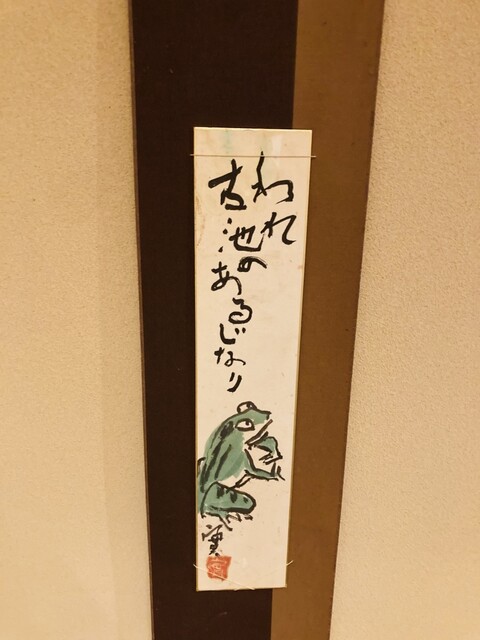 われ
古池の
あるじなり
實